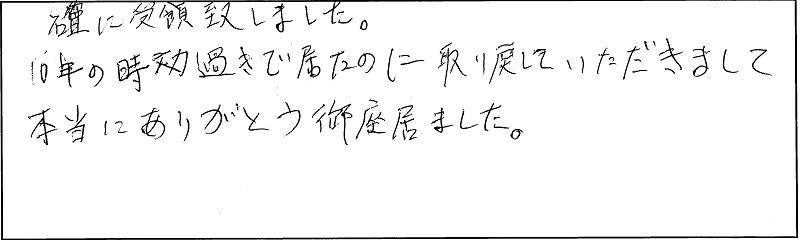 確に受領致しました。
10年の時効過きで居たのに取り戻していただきまして
本当にありがとう御座居ました。